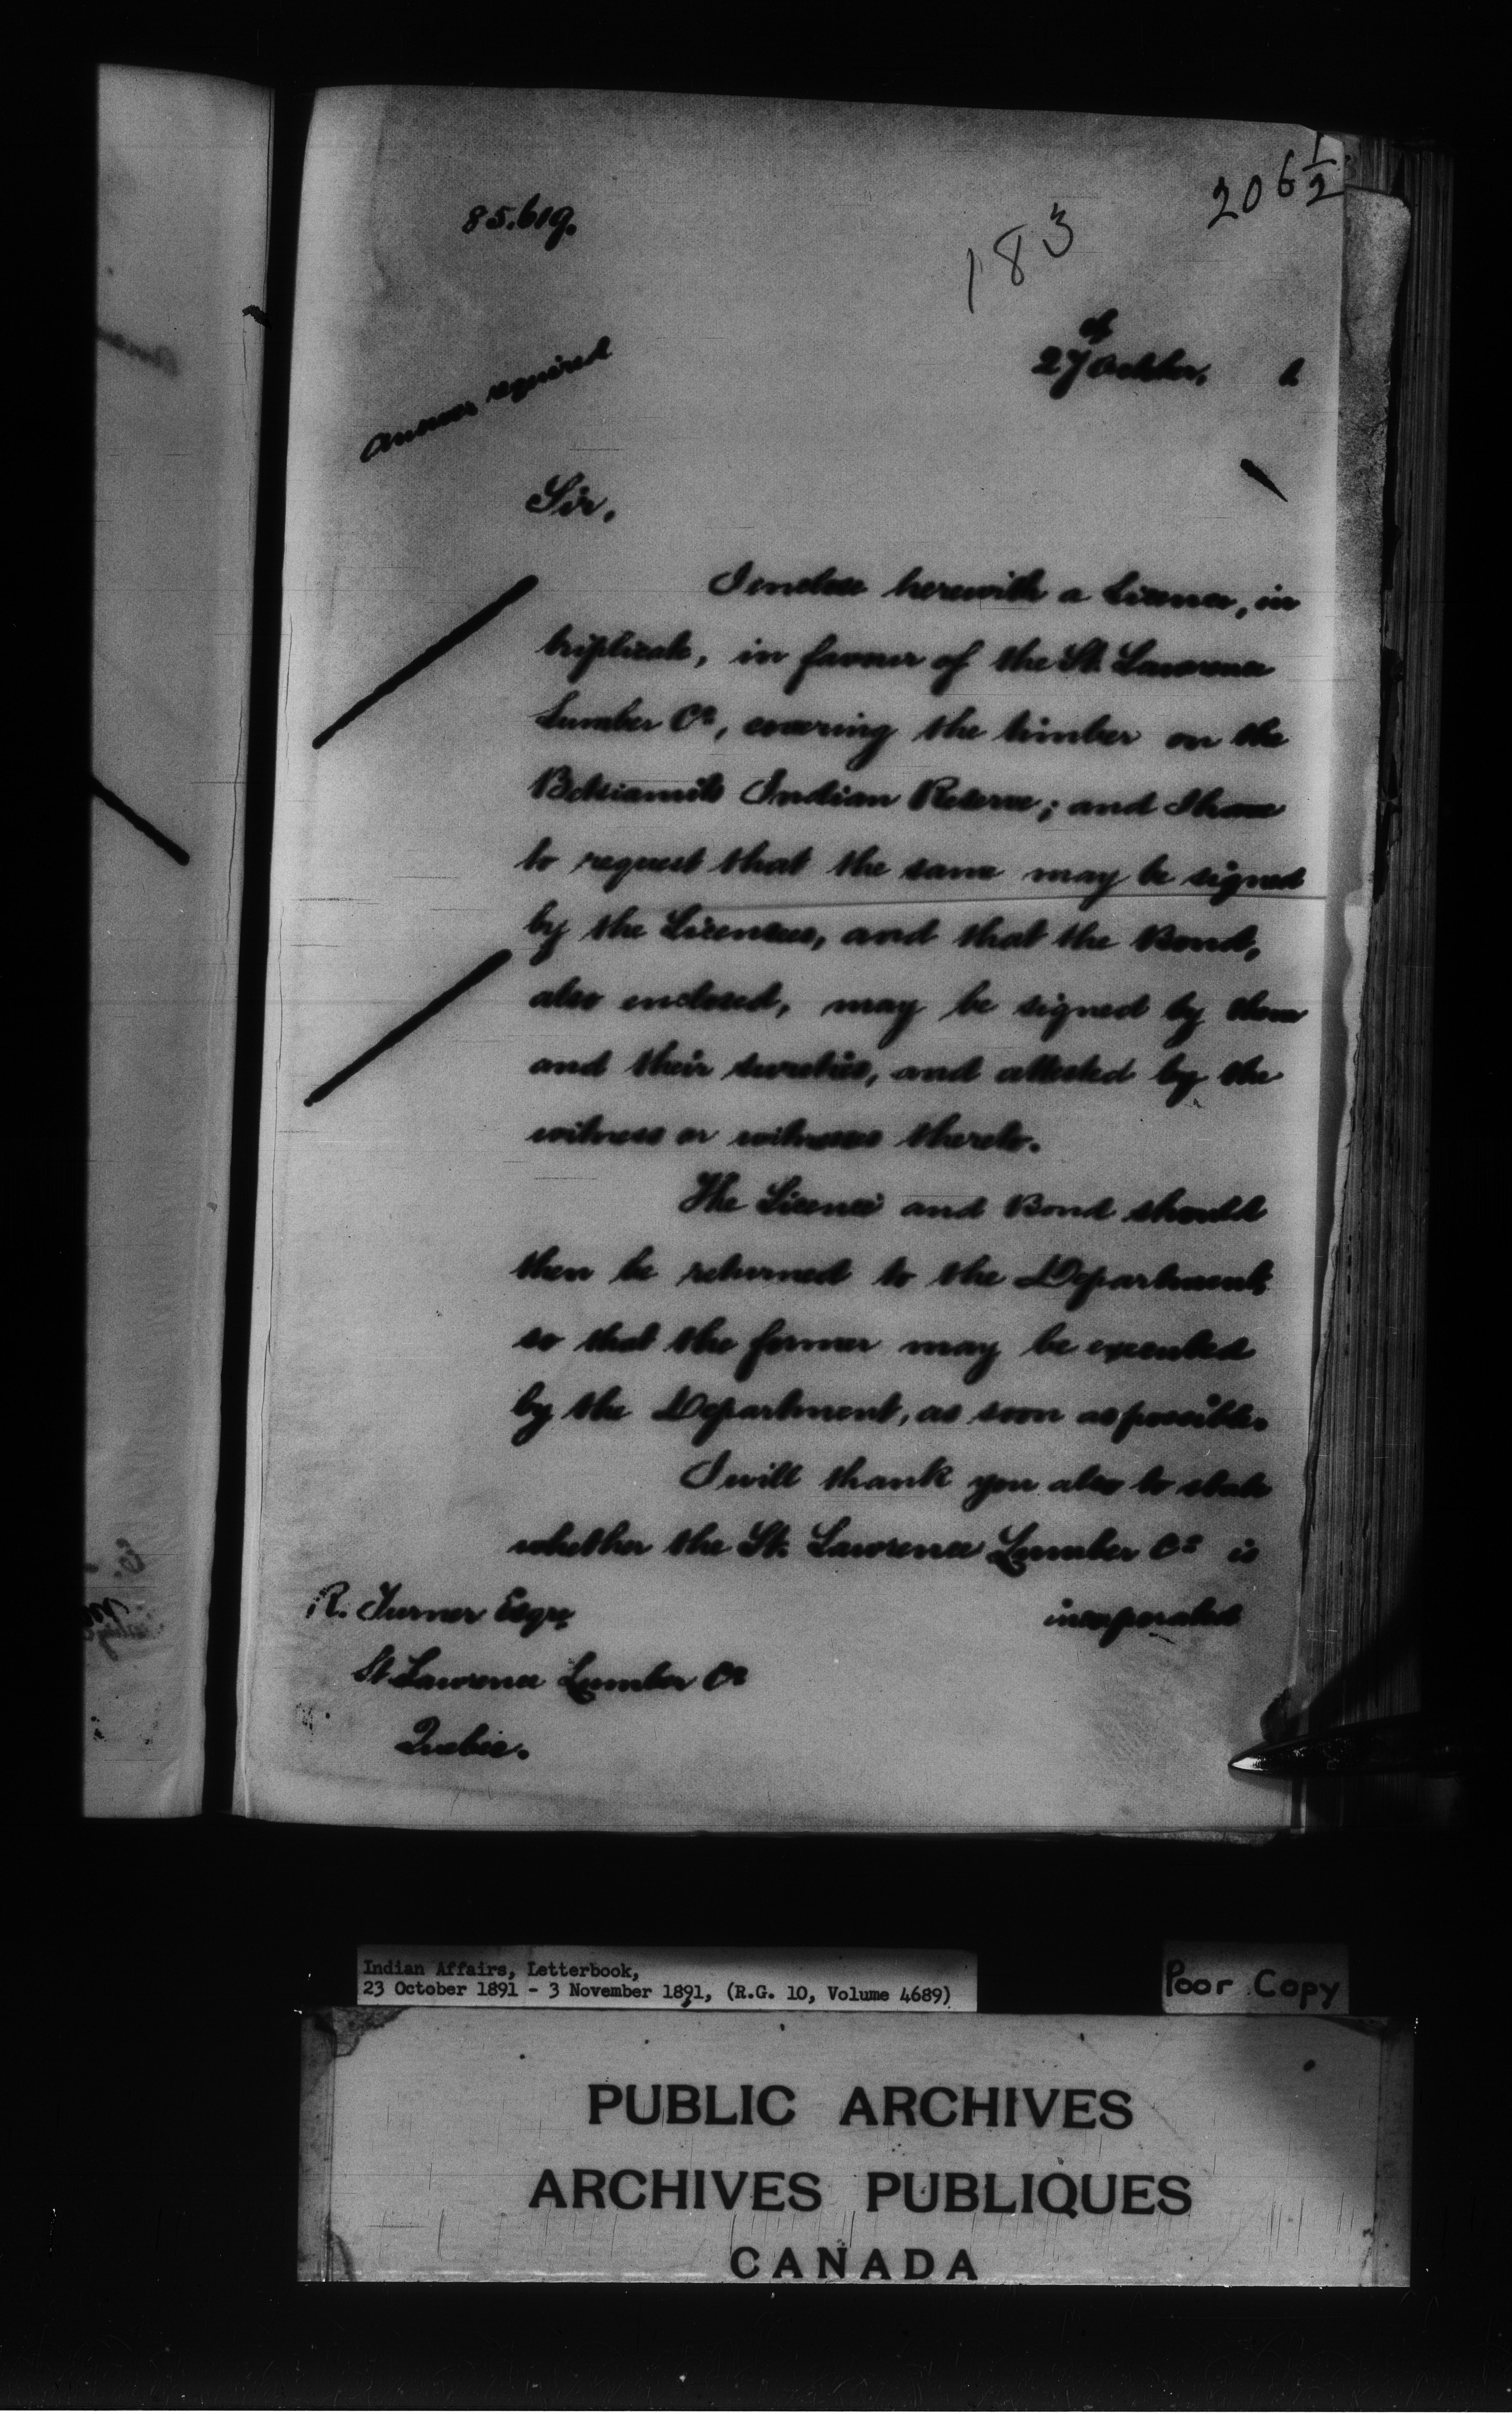 206 1/2
183
85.619.
27 October,
Answer required
Sir,
I enclose herewith a Licence, in
triplicate, in favour of the St. Lawrence
Lumber Co, covering the timber on the
Betsiamits Indian Reserve; and I have
to request that the same may be signed
by the Licensees, and that the Bond,
also enclosed, may be signed by them
and their sureties, and attested by the
witness or witnesses thereto.
The Licence and Bond should
then be returned to the Department,
so that the former may be executed
by the Department, as soon as possible.
I will thank you also to state
whether the St. Lawrence Lumber Co is
incorporated
R. Turner Esqre
St. Lawrence Lumber Co
Quebec.
Indian Affairs, Letterbook,
23 October 1891 - 3 November 1891, (R.G. 10, Volume 4689)
Poor Copy
PUBLIC ARCHIVES
ARCHIVES PUBLIQUES
CANADA